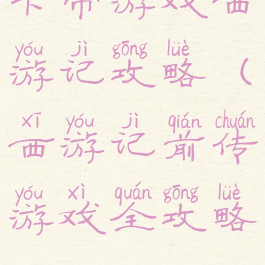 卡带游戏西
yóu jì gōng lüè
游记攻略（
xī yóu jì qián chuán
西游记前传
yóu xì quán gōng lüè
游戏全攻略